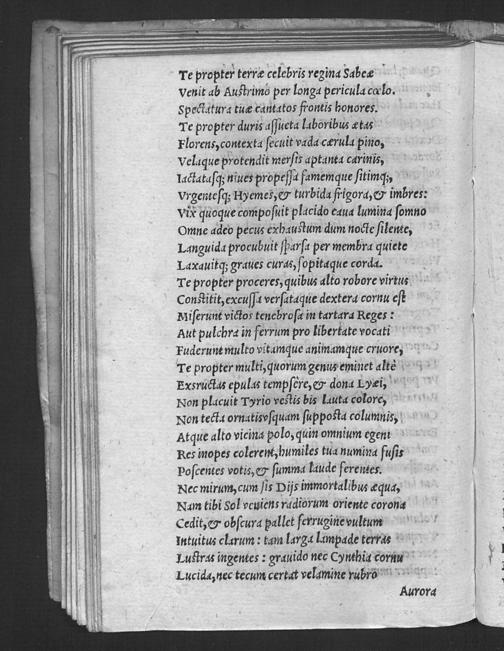 Te propter terræ celebris regina Sabeæ
Venit ab Austrimo per longa pericula cœlo.
Spectatura tuæ cantatos frontis honores.
Te propter duris assueta laboribus ætas
Florens, contexta secuit vada cærula pino,
Velaque protendit mersis aptanta carinis,
Iactatasq; niues propessa famemque sitimq;,
Vrgentesq; Hyemes, & turbida frigora, & imbres:
Vix quoque composuit placido caua lumina somno
Omne adeo pecus exhaustum dum nocte silente,
Languida procubuit sparsa per membra quiete
Laxauitq; graues curas, sopitaque corda.
Te propter proceres, quibus alto robore virtus
Constitit, excussa versataque dextera cornu est
Miserunt victos tenebrosa in tartara Reges:
Aut pulchra in ferrum pro libertate vocati
Fuderunt multo vitamque animamque cruore,
Te propter multi, quorum genus eminet altè
Exsructas epulas tempsêre, & dona Lyæi,
Non placuit Tyrio vestis bis lauta colore,
Non tecta ornatisvsquam supposta columnis,
Atque alto vicina polo, quin omnium egent
Res inopes colerent, humiles tua numina fusis
Poscentes votis, & summa laude ferentes.
Nec mirum, cum sis Dijs immortalibus æqua,
Nam tibi Sol veniens radiorum oriente corona
Cedit, & obscura pallet ferrugine vultum
Intuitus clarum: tam larga lampade terras
Lustras ingentes: grauido nec Cynthia cornu
Lucida, nec tecum certat velamine rubro
Aurora